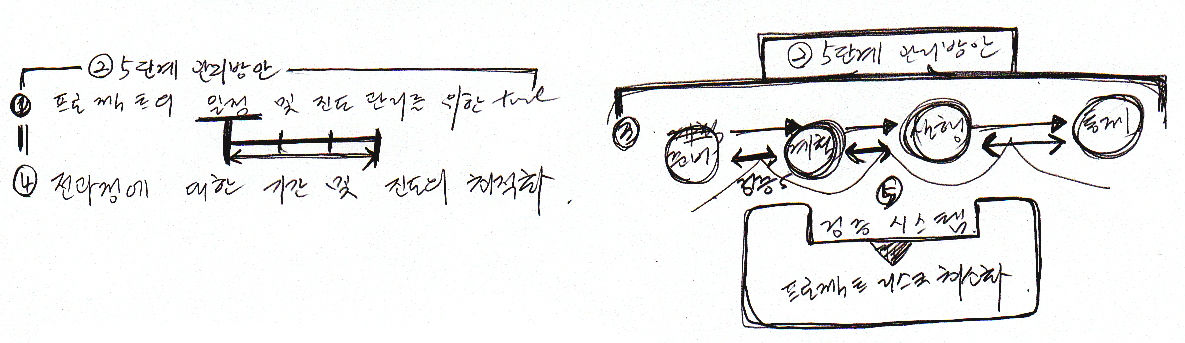 ② 5단계 관리방안
① 프로젝트의 일정 및 진도관리를 위한 tool
④ 전과정에 대한 기간 및 진도의 최적화.
② 5단계 관리방안
③ 준비 계획 실행 통제
검증
⑤
검증 시스템
프로젝트 리스크 최소화